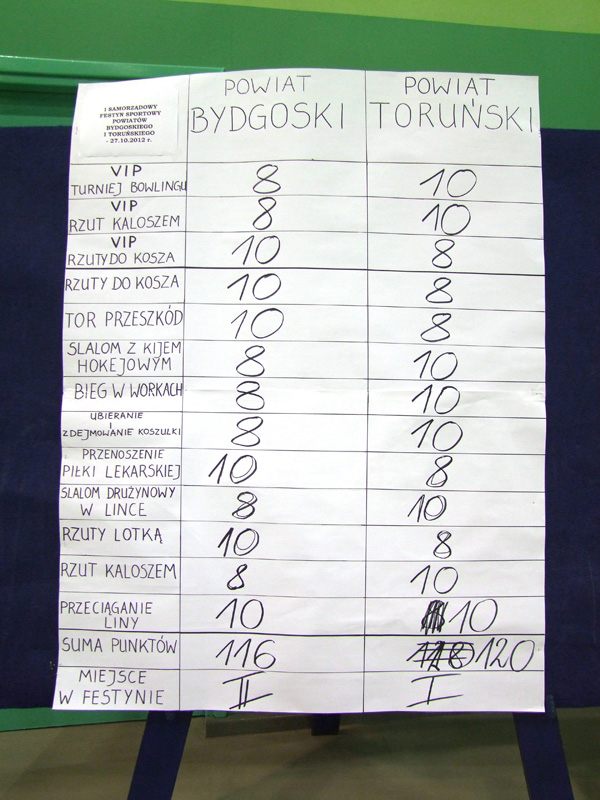 I SAMORZĄDOWY
FESTYN SPORTOWY
POWIATÓW
BYDGOSKIEGO
I TORUŃSKIEGO
- 27.10.2012 r.
POWIAT BYDGOSKI
POWIAT TORUŃSKI
VIP
TURNIEJ BOWLINGU 8 10
VIP
RZUT KALOSZEM 8 10
VIP
RZUTY DO KOSZA 10 8
RZUTY DO KOSZA 10 8
TOR PRZESZKÓD 10 8
SLALOM Z KIJEM
HOKEJOWYM 8 10
BIEG W WORKACH 8 10
UBIERANIE
I
ZDEJMOWANIE KOSZULKI 8 10
PRZENOSZENIE
PIŁKI LEKARSKIEJ 10 8
SLALOM DRUŻYNOWY
W LINCE 8 10
RZUTY LOTKĄ 10 8
RZUT KALOSZEM 8 10
PRZECIĄGANIE
LINY 10 10
SUMA PUNKTÓW 116 120
MIEJSCE
W FESTYNIE II I